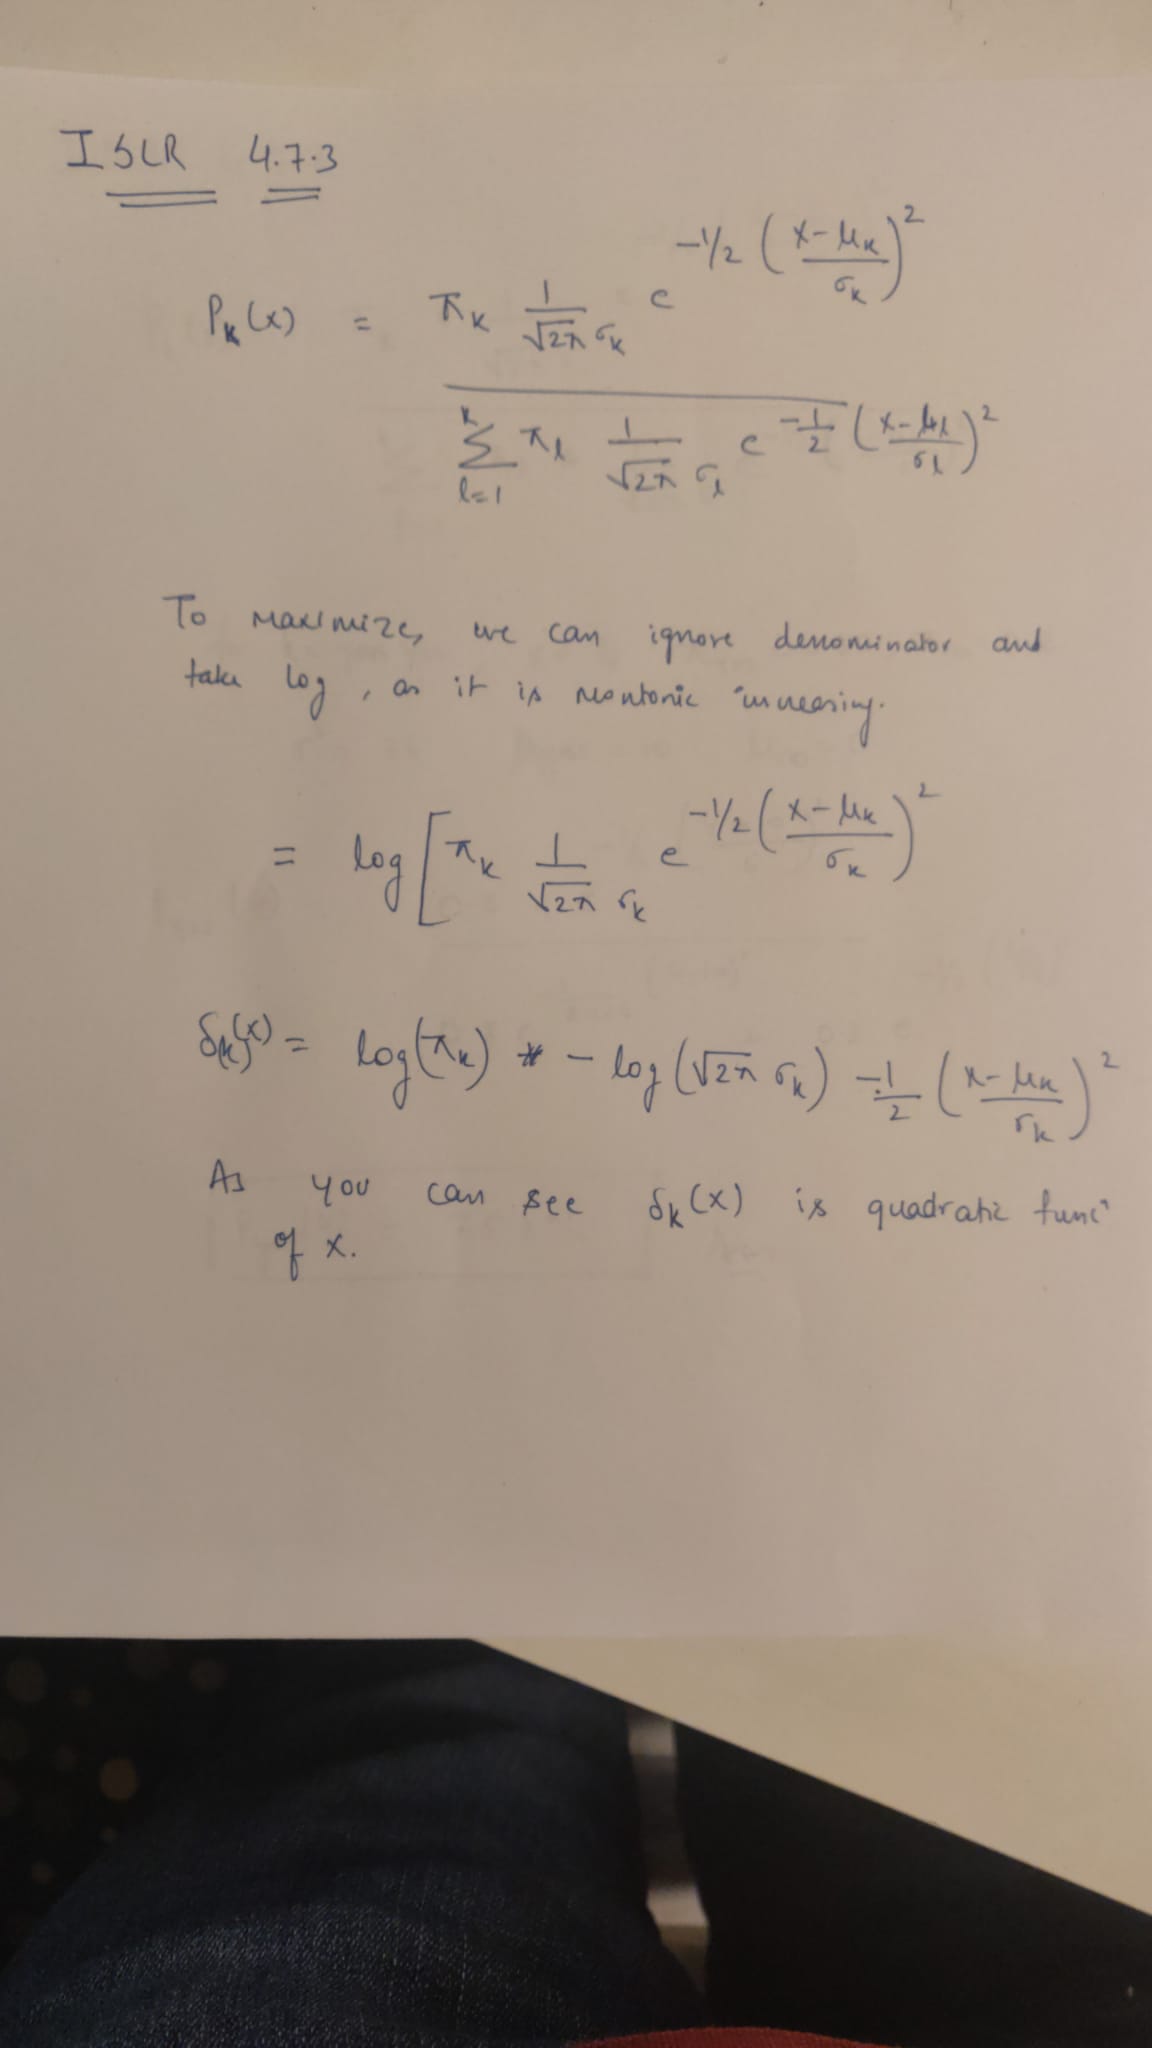 ISLR 4.7.3
P_k(x) = π_k 1/(√2π σ_k) e^(-1/2 ((x-μ_k)/σ_k)^2)
Σ_{l=1}^{k} π_l 1/(√2π σ_l) e^(-1/2 ((x-μ_l)/σ_l)^2)
To maximize, we can ignore denominator and
take log, as it is montonic increasing.
= log [ π_k 1/(√2π σ_k) e^(-1/2 ((x-μ_k)/σ_k)^2)
δ_k(x) = log(π_k) - log(√2π σ_k) -1/2 ((x-μ_k)/σ_k)^2
As you can see δ_k(x) is quadratic func^n
of x.